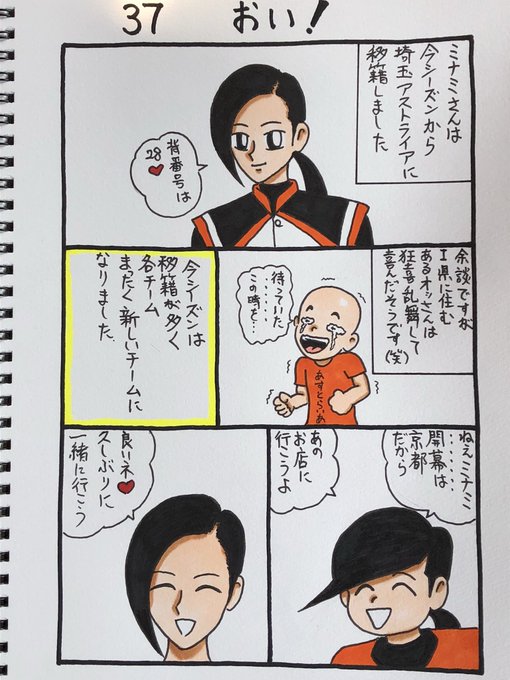 37 おい!
ミナミさんは
今シーズンから
埼玉アストライアに
移籍しました
背番号は
28♥
余談ですが
I県に住む
あるオッさんは
狂喜乱舞して
喜んだそうです(笑)
待っていた
この時を…
あすとらいあ
今シーズンは
移籍が多く
各チーム
まったく新しいチームに
なりました
ねぇミナミ
開幕は
京都
だから
あの
お店に
行こうよ
良いネ♥
久しぶりに
一緒に行こう